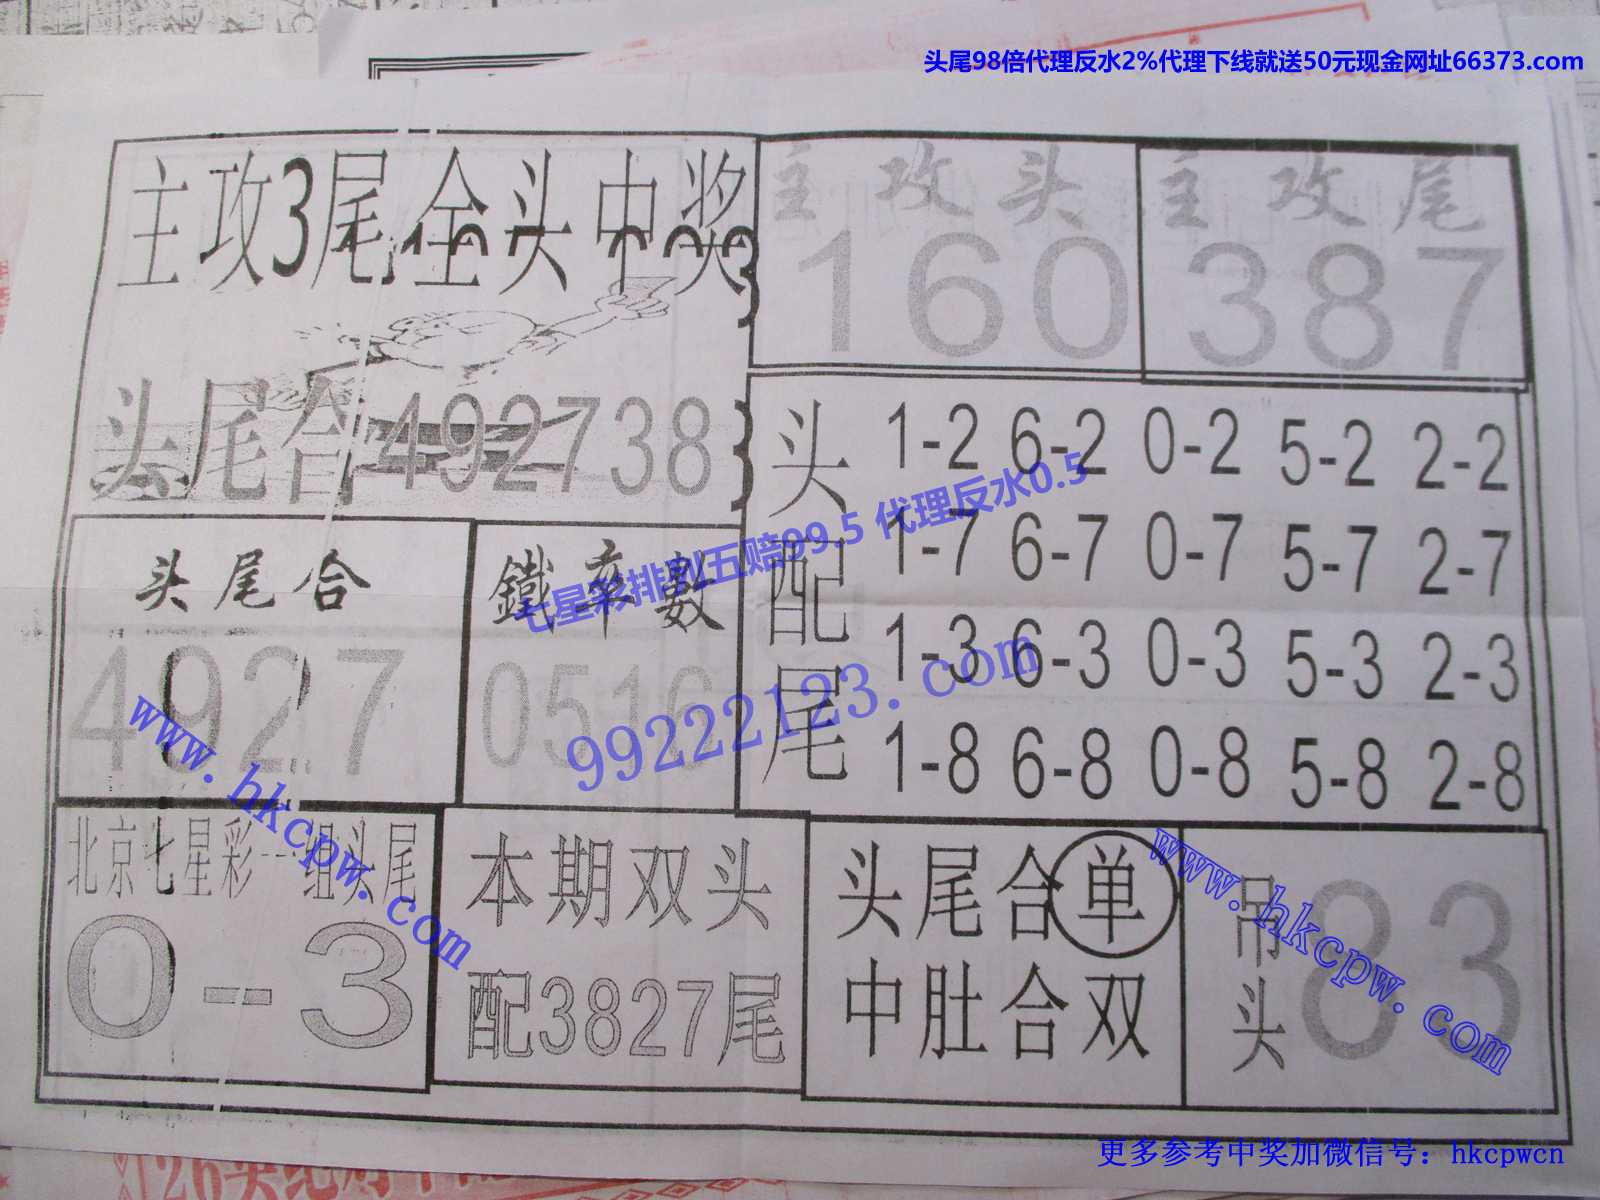 头尾98倍代理反水2%代理下线就送50元现金网址66373.com
主攻3尾全头中奖
主攻头
160
主攻尾
387
头尾合492738
头配尾
1-2 6-2 0-2 5-2 2-2
1-7 6-7 0-7 5-7 2-7
1-3 6-3 0-3 5-3 2-3
1-8 6-8 0-8 5-8 2-8
七星彩排列五赔99.5 代理反水0.5
头尾合
4927
鐵率數
0516
99222123.com
www.hkcpw.com
北京七星彩一组头尾
0--3
本期双头
配3827尾
头尾合单
中肚合双
吊头
83
www.hkcpw.com
更多参考中奖加微信号：hkcpwcn